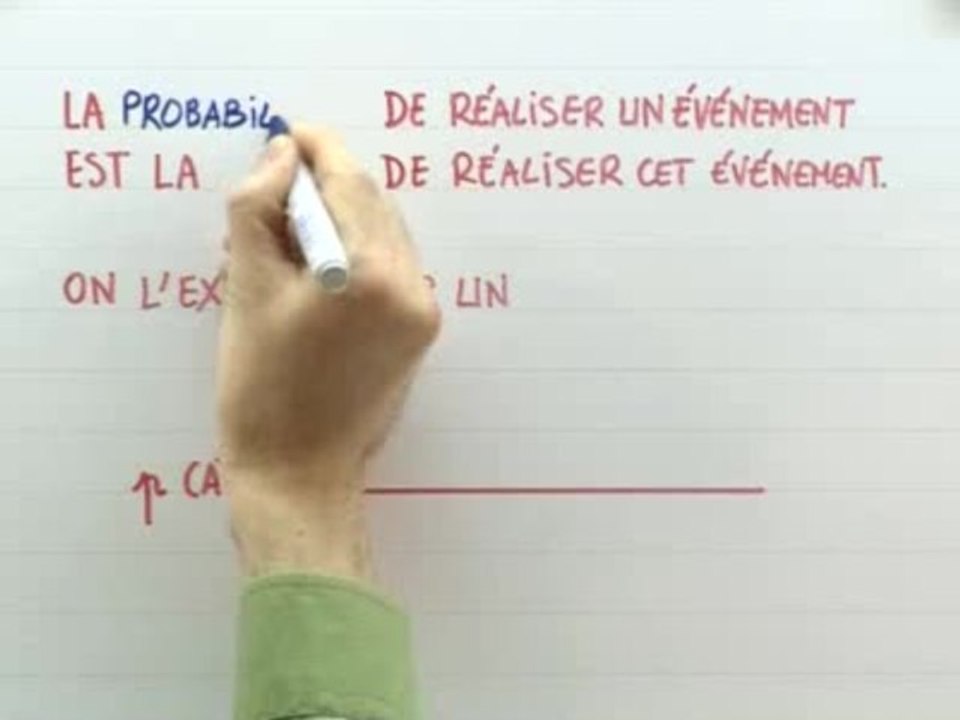 LA PROBABIL DE RÉALISER UN ÉVÉNEMENT
EST LA DE RÉALISER CET ÉVÉNEMENT.
ON L'EX UN
p CA